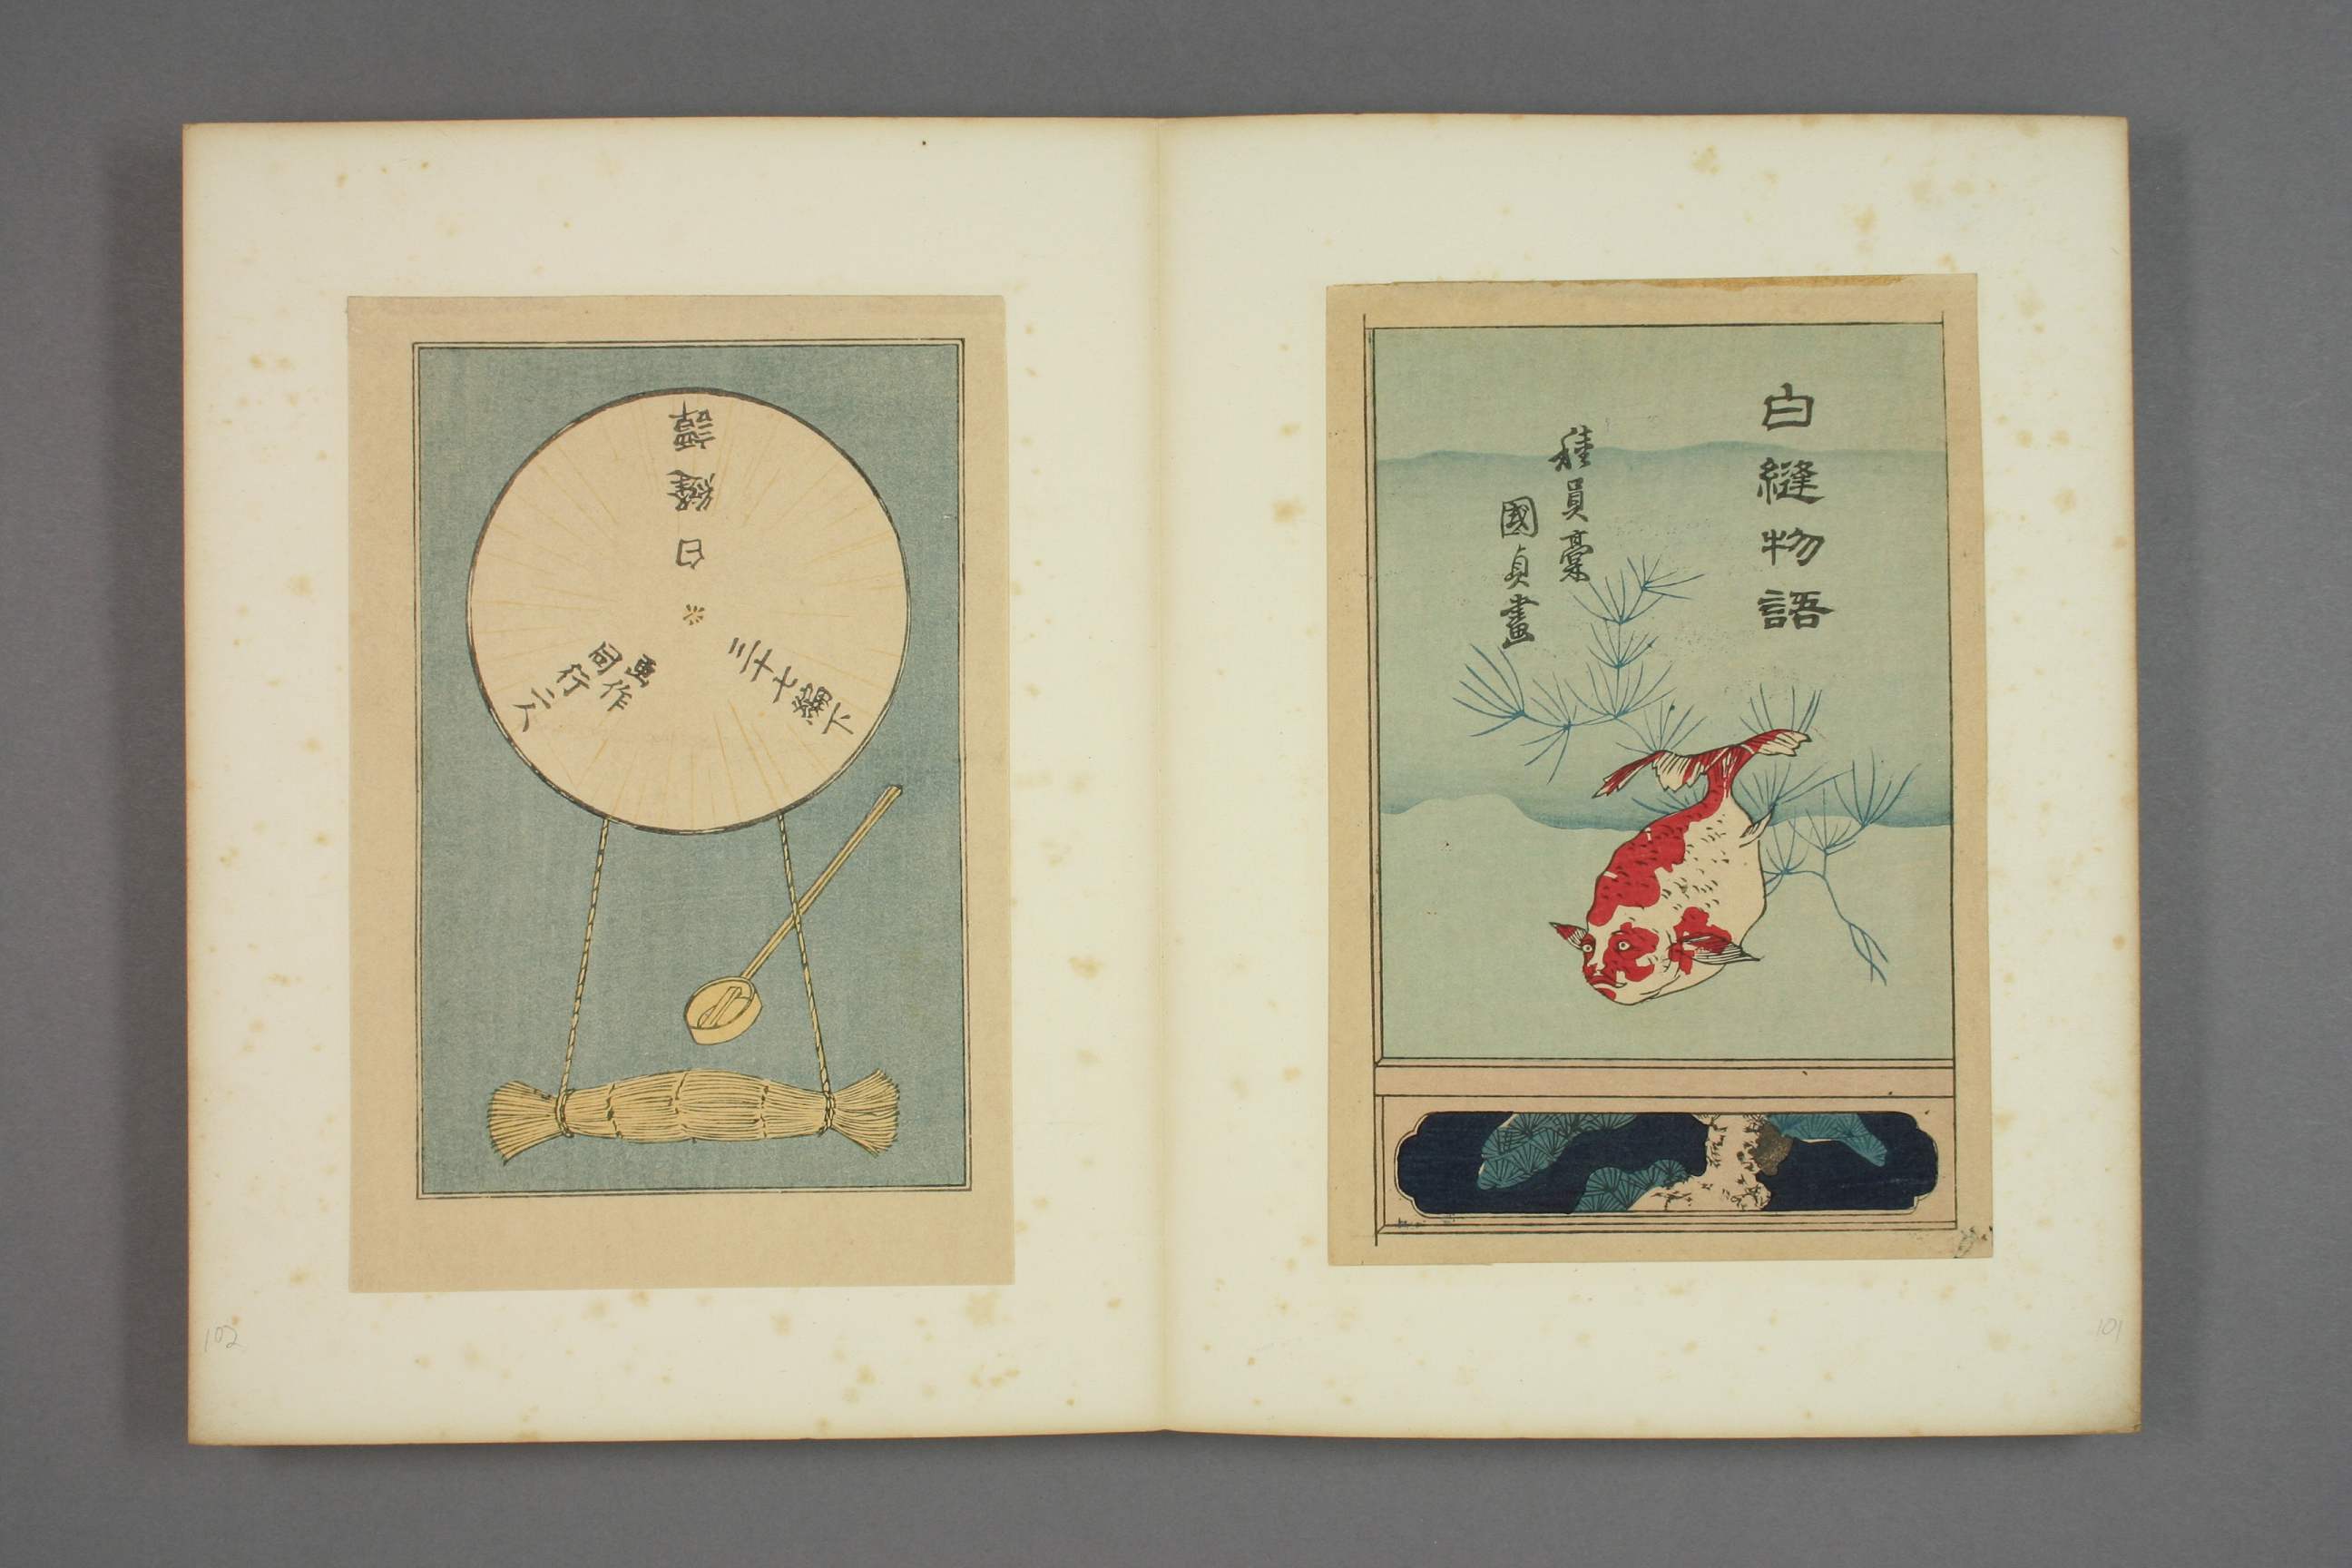 白縫物語
種員稾
國貞畫
白縫譚
三十七編下
画作
同行二人
101
102